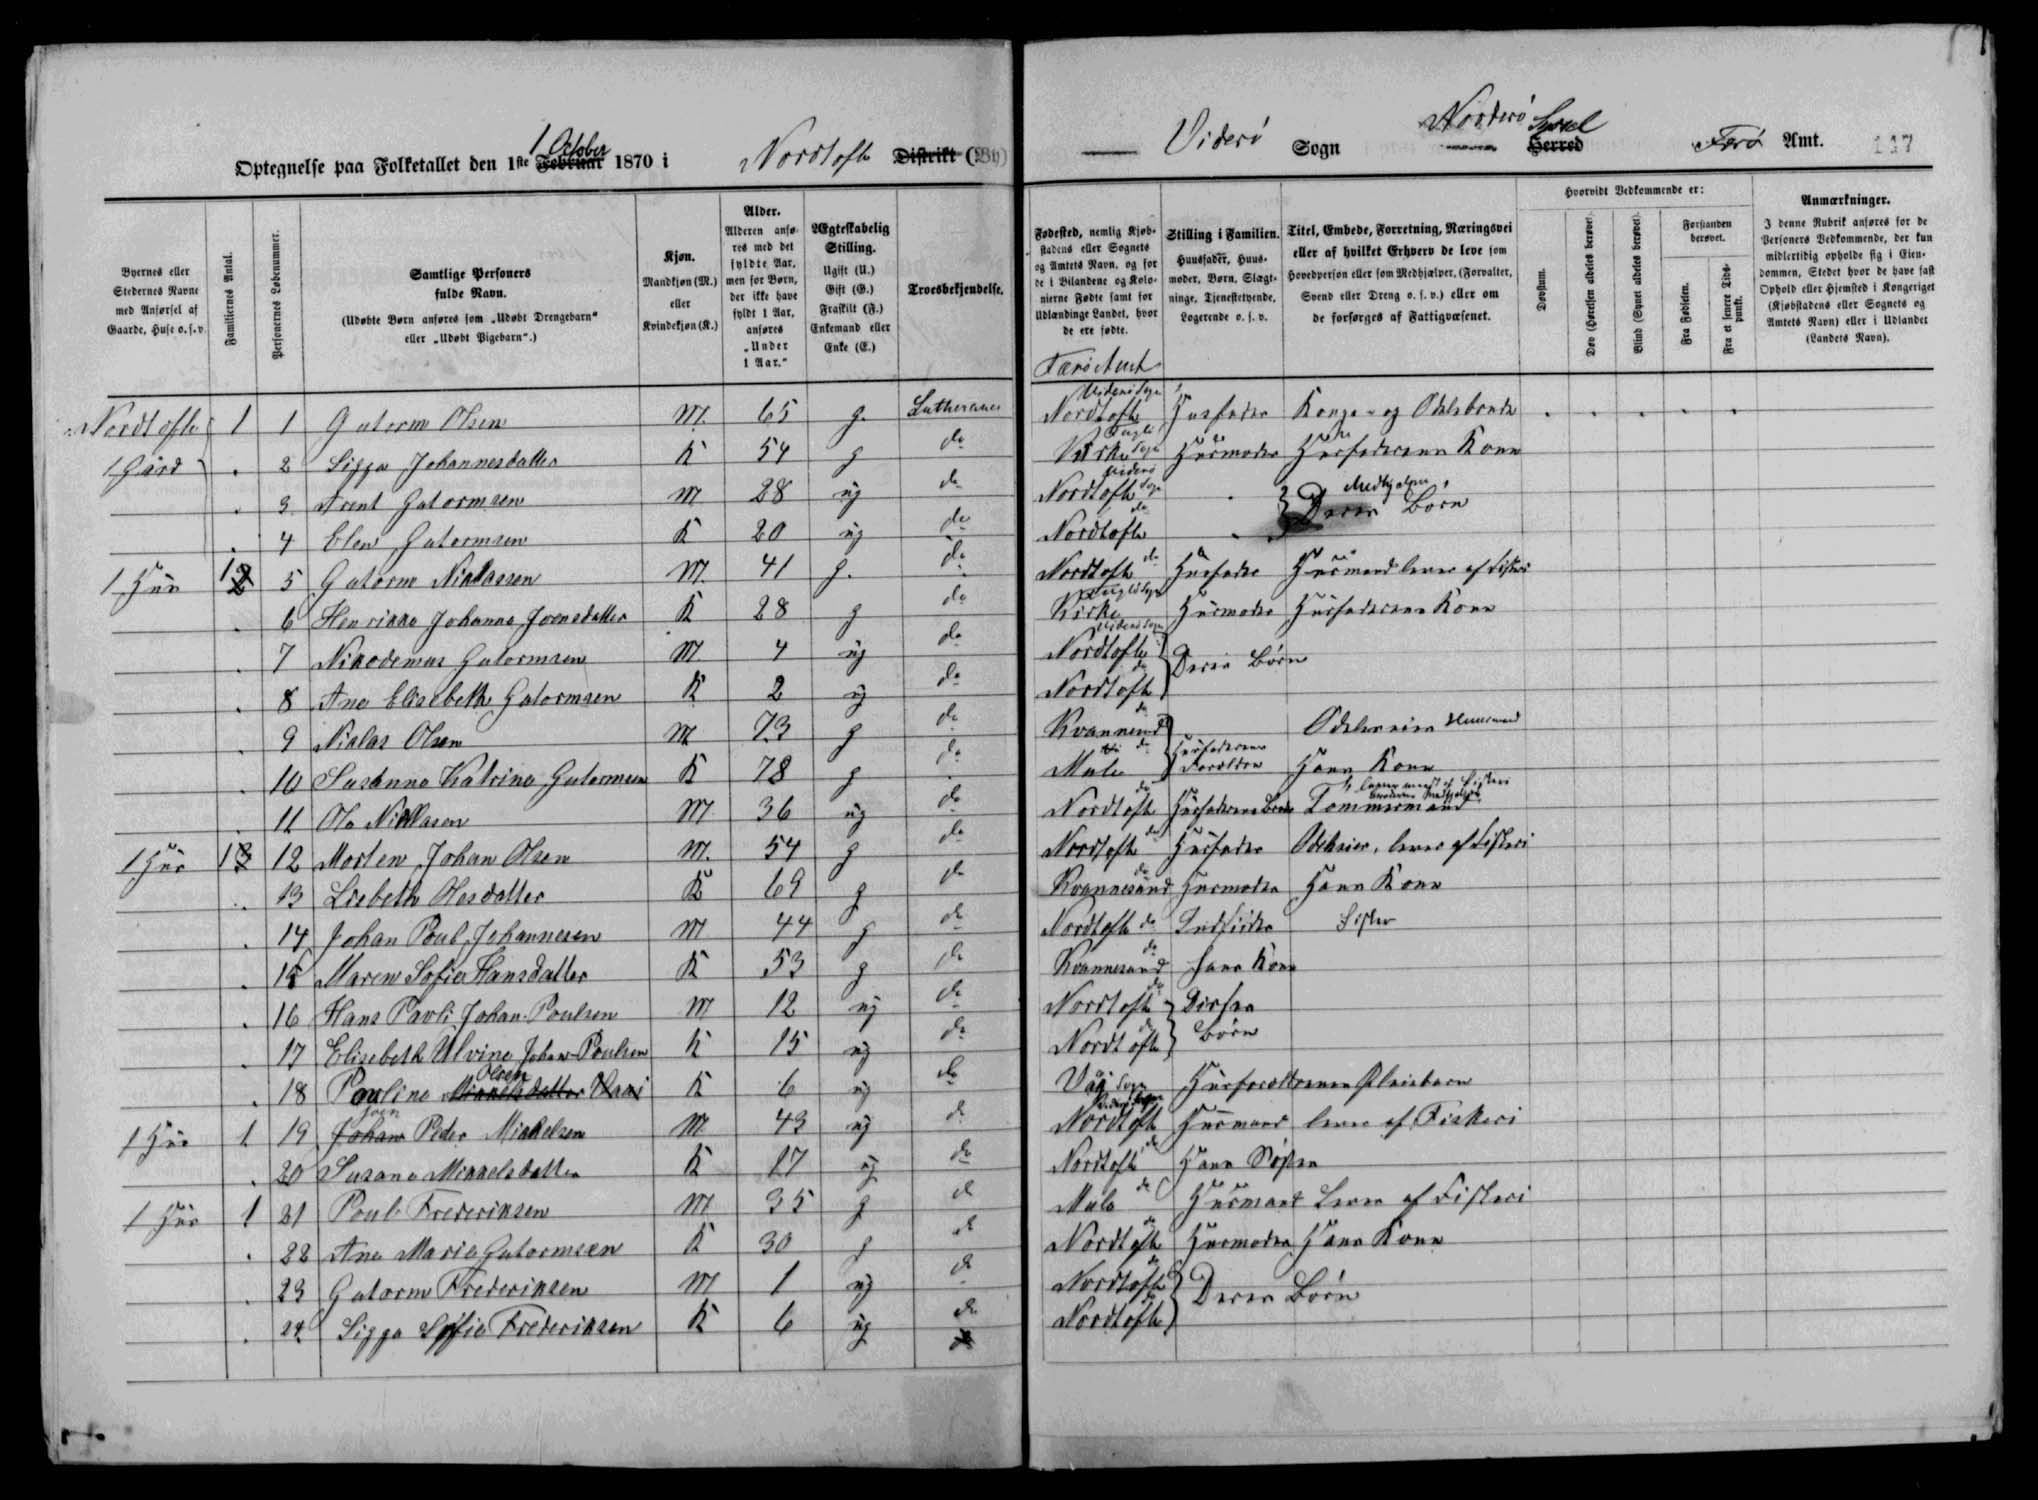 Optegnelse paa Folketallet den 1ste Februar 1 October 1870 i Nordtofte Distrikt (By)
Viderö Sogn Norderö Syssel Herred Færö Amt. 117
Byernes eller Stedernes Navne med Anførsel af Gaarde, Huse o. s. v.
Familiernes Antal.
Personernes Løbenummer.
Samtlige Personers fulde Navn.
(Udøbte Børn anføres som „Udøbt Drengebarn“ eller „Udøbt Pigebarn“.)
Kjøn.
Mandkjøn (M.) eller Kvindekjøn (K.)
Alder.
Alderen anføres med det fyldte Aar, men for Børn, der ikke have fyldt 1 Aar, anføres „Under 1 Aar.“
Ægteskabelig Stilling.
Ugift (U.) Gift (G.) Fraskilt (F.) Enkemand eller Enke (E.)
Troesbekjendelse.
Fødested, nemlig Kjøbstadens eller Sognets og Amtets Navn, og for de i Bilandene og Kolonierne Fødte samt for Udlændinge Landet, hvor de ere fødte.
Stilling i Familien.
Huusfader, Huusmoder, Børn, Slægtninge, Tjenestetyende, Logerende o. s. v.
Titel, Embede, Forretning, Næringsvei eller af hvilket Erhverv de leve som Hovedperson eller som Medhjælper, (Forvalter, Svend eller Dreng o. s. v.) eller om de forsørges af Fattigvæsenet.
Hvorvidt Vedkommende er:
Døvstum.
Døv (Hørelsen aldeles berøvet).
Blind (Synet aldeles berøvet).
Forstanden berøvet.
Fra Fødselen.
Fra et senere Tidspunkt.
Anmærkninger.
I denne Rubrik anføres for de Personers Vedkommende, der kun midlertidig opholde sig i Eiendommen, Stedet hvor de have fast Ophold eller Hjemsted i Kongeriget (Kjøbstadens eller Sognets og Amtets Navn) eller i Udlandet (Landets Navn).
Færö Amt
Nordtofte 1 1 Gutorm Olsen M. 65 g. Lutheraner Viderö Sogn Nordtofte Husfader Konge- og Odelsbonde
1 Gård 2 Sigga Johannesdatter K 54 g do Fuglö Sogn Kirke Husmoder Husfaderens Kone
3 Arent Gutormsen M 28 ug do Viderö Sogn Nordtofte Deres Børn Medhjelper
4 Elen Gutormsen K 20 ug do Nordtofte do
1 Hus 1 5 Gutorm Niklassen M. 41 g. do Nordtofte do Husfader Husmand lever af Fiskeri
6 Henrikka Johanna Joensdatter K 28 g do Fuglö Sogn Kirke Husmoder Husfaderens Kone
7 Nikodemus Gutormsen M 4 ug do Viderö Sogn Nordtofte Deres Børn
8 Ane Elisebeth Gutormsen K 2 ug do Nordtofte do
9 Niklas Olsen M 73 g do Kvannesund do Husfaderens Forældre Odelseier Huusmand
10 Susanna Katrina Gutormsen K 78 g do Mule do Hans Kone
11 Ole Niklasen M 36 ug do Nordtofte do Husfaderens Broder Tømmermand
1 Hus 1 12 Morten Johan Olsen M. 54 g do Nordtofte do Husfader Odelseier, lever af Fiskeri
13 Lisbeth Olesdatter K 69 g do Kvannesund do Husmoder Hans Kone
14 Johan Poul Johannesen M 44 g do Nordtofte do Indsidder Fisker
15 Maren Sofia Hansdatter K 53 g do Kvannesund do Hans Kone
16 Hans Pavli Johan-Poulsen M 12 ug do Nordtofte do Disses Børn
17 Elisebeth Ulvine Johan-Poulsen K 15 ug do Nordtofte do
18 Pouline Mikkelsdatter Olsen K 6 ug do Vaag Sogn Husforældrenes Pleiebarn
1 Hus 1 19 Johan Joen Peder Mikkelsen M. 43 ug do Viderö Sogn Nordtofte Husmand lever af Fiskeri
20 Susana Mikkelsdatter K 17 ug do Nordtofte do Hans Søster
1 Hus 1 21 Poul Frederiksen M 35 g do Mule do Husmand Lever af Fiskeri
22 Ane Marie Gutormsen K 30 g do Nordtofte do Husmoder Hans Kone
23 Gutorm Frederiksen M 1 ug do Nordtofte do Deres Børn
24 Sigga Soffie Frederiksen K 6 ug do Nordtofte do